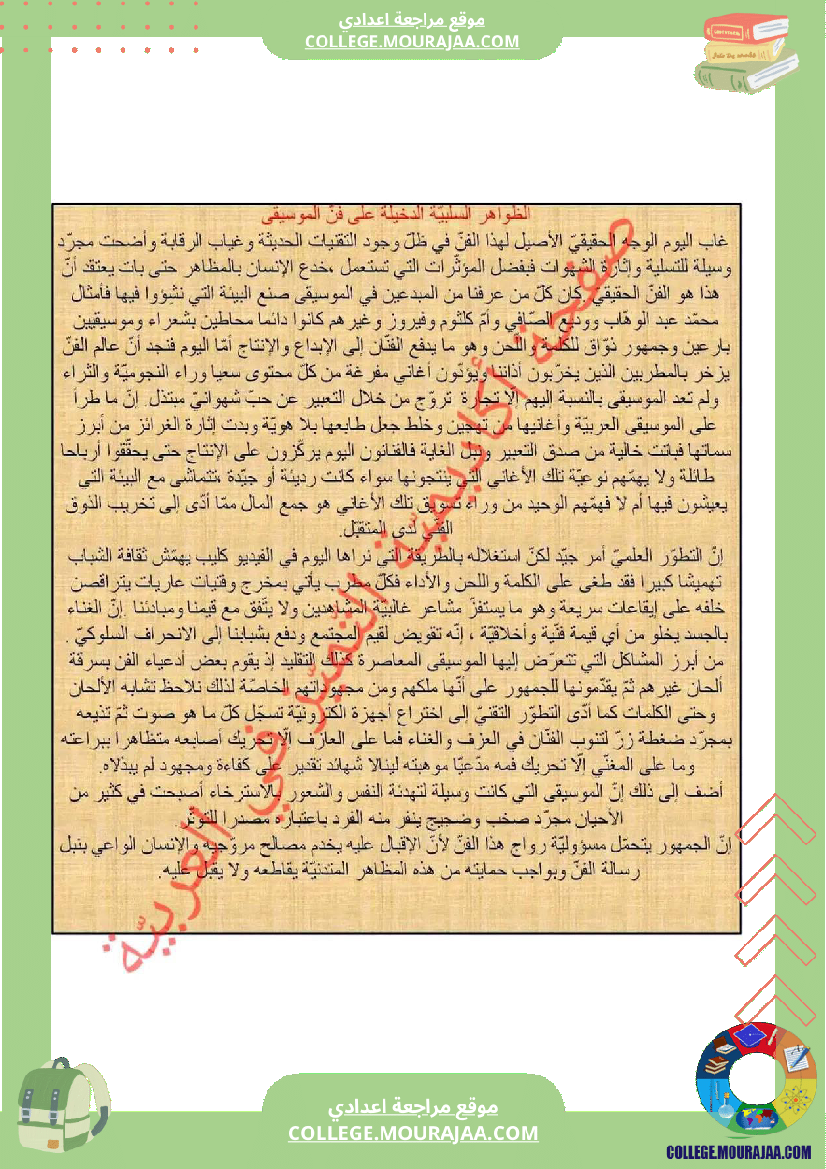 موقع مراجعة اعدادي
COLLEGE.MOURAJAA.COM
الظواهر السلبيّة الدخيلة على فنّ الموسيقى
غاب اليوم الوجه الحقيقيّ الأصيل لهذا الفنّ في ظلّ وجود التقنيات الحديثة وغياب الرقابة وأضحت مجرّد
وسيلة للتسلية وإثارة الشهوات فبفضل المؤثّرات التي تستعمل ،خدع الإنسان بالمظاهر حتى بات يعتقد أنّ
هذا هو الفنّ الحقيقيّ .كان كلّ من عرفنا من المبدعين في الموسيقى صنع البيئة التي نشؤوا فيها فأمثال
محمّد عبد الوهّاب ووديع الصّافي وأمّ كلثوم وفيروز وغيرهم كانوا دائما محاطين بشعراء وموسيقيين
بارعين وجمهور ذوّاق للكلمة واللحن وهو ما يدفع الفنّان إلى الإبداع والإنتاج أمّا اليوم فنجد أنّ عالم الفنّ
يزخر بالمطربين الذين يخرّبون أذاننا ويؤثّون أغاني مفرغة من كلّ محتوى سعيا وراء النجوميّة والثراء
ولم تعد الموسيقى بالنسبة اليهم الّا تجارة تروّج من خلال التعبير عن حبّ شهوانيّ مبتذل. إنّ ما طرأ
على الموسيقى العربيّة وأغانيها من تهجين وخلط جعل طابعها بلا هويّة وبدت إثارة الغرائز من أبرز
سماتها فباتت خالية من صدق التعبير ونبل الغاية فالفنانون اليوم يركّزون على الإنتاج حتى يحقّقوا أرباحا
طائلة ولا يهمّهم نوعيّة تلك الأغاني التي ينتجونها سواء كانت رديئة أو جيّدة ،تتماشى مع البيئة التي
يعيشون فيها أم لا فهمّهم الوحيد من وراء تسويق تلك الأغاني هو جمع المال ممّا أدّى إلى تخريب الذوق
الفنّي لدى المتقبّل.
إنّ التطوّر العلميّ أمر جيّد لكنّ استغلاله بالطريقة التي نراها اليوم في الفيديو كليب يهمّش ثقافة الشباب
تهميشا كبيرا فقد طغى على الكلمة واللحن والأداء فكلّ مطرب يأتي بمخرج وفتيات عاريات يتراقصن
خلفه على إيقاعات سريعة وهو ما يستفزّ مشاعر غالبيّة المشاهدين ولا يتّفق مع قيمنا ومبادئنا .إنّ الغناء
بالجسد يخلو من أي قيمة فنّية وأخلاقيّة ، إنّه تقويض لقيم المجتمع ودفع بشبابنا إلى الانحراف السلوكيّ .
من أبرز المشاكل التي تتعرّض إليها الموسيقى المعاصرة كذلك التقليد إذ يقوم بعض أدعياء الفن بسرقة
ألحان غيرهم ثمّ يقدّمونها للجمهور على أنّها ملكهم ومن مجهوداتهم الخاصّة لذلك نلاحظ تشابه الألحان
وحتى الكلمات كما أدّى التطوّر التقنيّ إلى اختراع أجهزة الكترونيّة تسجّل كلّ ما هو صوت ثمّ تذيعه
بمجرّد ضغطة زرّ لتنوب الفنّان في العزف والغناء فما على العازف إلّا تحريك أصابعه متظاهرا ببراعته
وما على المغنّي الّا تحريك فمه مدّعيّا موهبته لينالا شهائد تقدير على كفاءة ومجهود لم يبذلاه.
أضف إلى ذلك إنّ الموسيقى التي كانت وسيلة لتهدئة النفس والشعور بالاسترخاء أصبحت في كثير من
الأحيان مجرّد صخب وضجيج ينفر منه الفرد باعتباره مصدرا للتوتّر
إنّ الجمهور يتحمّل مسؤوليّة رواج هذا الفنّ لأنّ الإقبال عليه يخدم مصالح مروّجيه والإنسان الواعي بنبل
رسالة الفنّ وبواجب حمايته من هذه المظاهر المتدنيّة يقاطعه ولا يقبل عليه.
صفحة أكاديميّة التّميّز في العربيّة
موقع مراجعة اعدادي
COLLEGE.MOURAJAA.COM
COLLEGE.MOURAJAA.COM